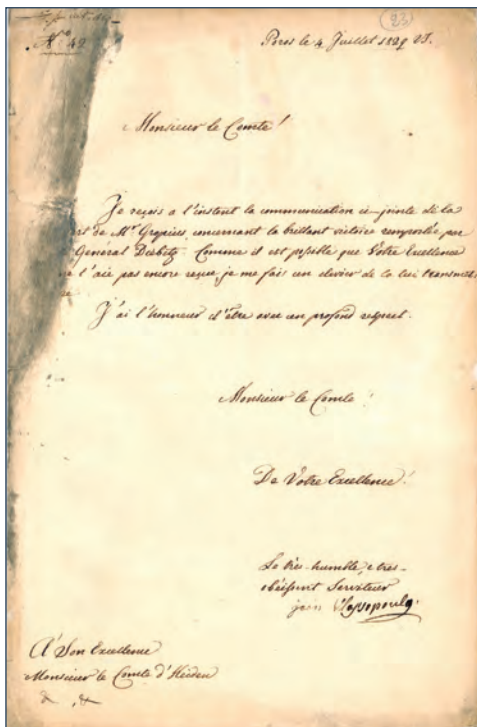 (23)
Nº 42
Poros le 4 Juillet 1829 V.S.
Monsieur le Comte!
Je reçois a l'instant la communication ci-jointe de la
rt de Mr Gropius concernant la brillant victoire remportée par
Général Diebitz. Comme il est possible que Votre Excellence
ne l'aie pas encore reçue je me fais un devoir de la lui transmet
re
J'ai l'honneur d'être avec un profond respect.
Monsieur le Comte!
De Votre Excellence!
Le très-humble, e tres-
obéissant Serviteur
A Son Excellence
Monsieur le Comte d'Heiden
&, &